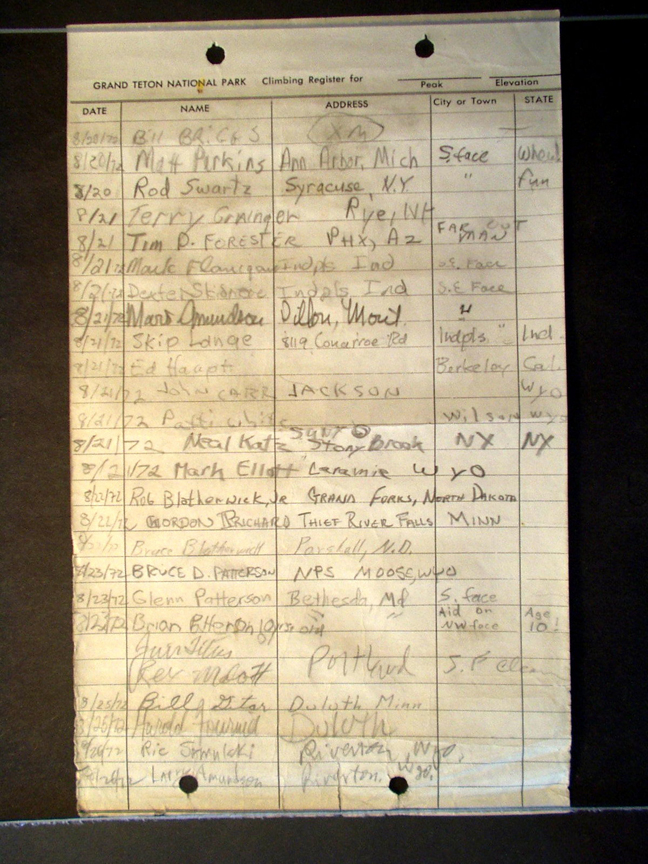 GRAND TETON NATIONAL PARK Climbing Register for Peak Elevation
DATE NAME ADDRESS City or Town STATE
8/20/72 Bill BRIGGS XM
8/20/72 Matt Perkins Ann Arbor, Mich S. face Whew!
8/20 Rod Swartz Syracuse, N.Y. " Fun
8/21 Terry Rye, NH
8/21 TIM D. FORESTER PHX, AZ FAR OUT MAN
8/21/72 Mark Flanigan Indpls Ind S.E. Face
8/21/72 Dexter Indpls Ind S.E Face
8/21/72 Mark Amundson Dillon, Mont. "
8/21/72 Skip Lange 8119 Rd Indpls. Ind.
8/21/72 Ed Haupt Berkeley Cal.
8/21/72 JOHN CARR JACKSON WYO
8/21/72 Patti White Wilson Wyo
8/21/72 Neal Katz SUNY @ Stony Brook NY NY
8/21/72 Mark Ellott Laramie WYO
8/22/72 ROB Blotherwick, JR GRAND FORKS, NORTH DAKOTA
8/22/72 GORDON PRICHARD THIEF RIVER FALLS MINN
Bruce Parshall, N.D.
8/23/72 BRUCE D. PATTERSON NPS MOOSE, WYO
8/23/72 Glenn Patterson Bethesda, Md S. face
Brian 10 yrs old " Aid on NW face Age 10!
Titus
Rex Portland S. F
8/25/72 Bill Duluth Minn
8/25/72 Harold Duluth
Ric Riverton, Wyo.
Larry Amundson Riverton, Wyo.